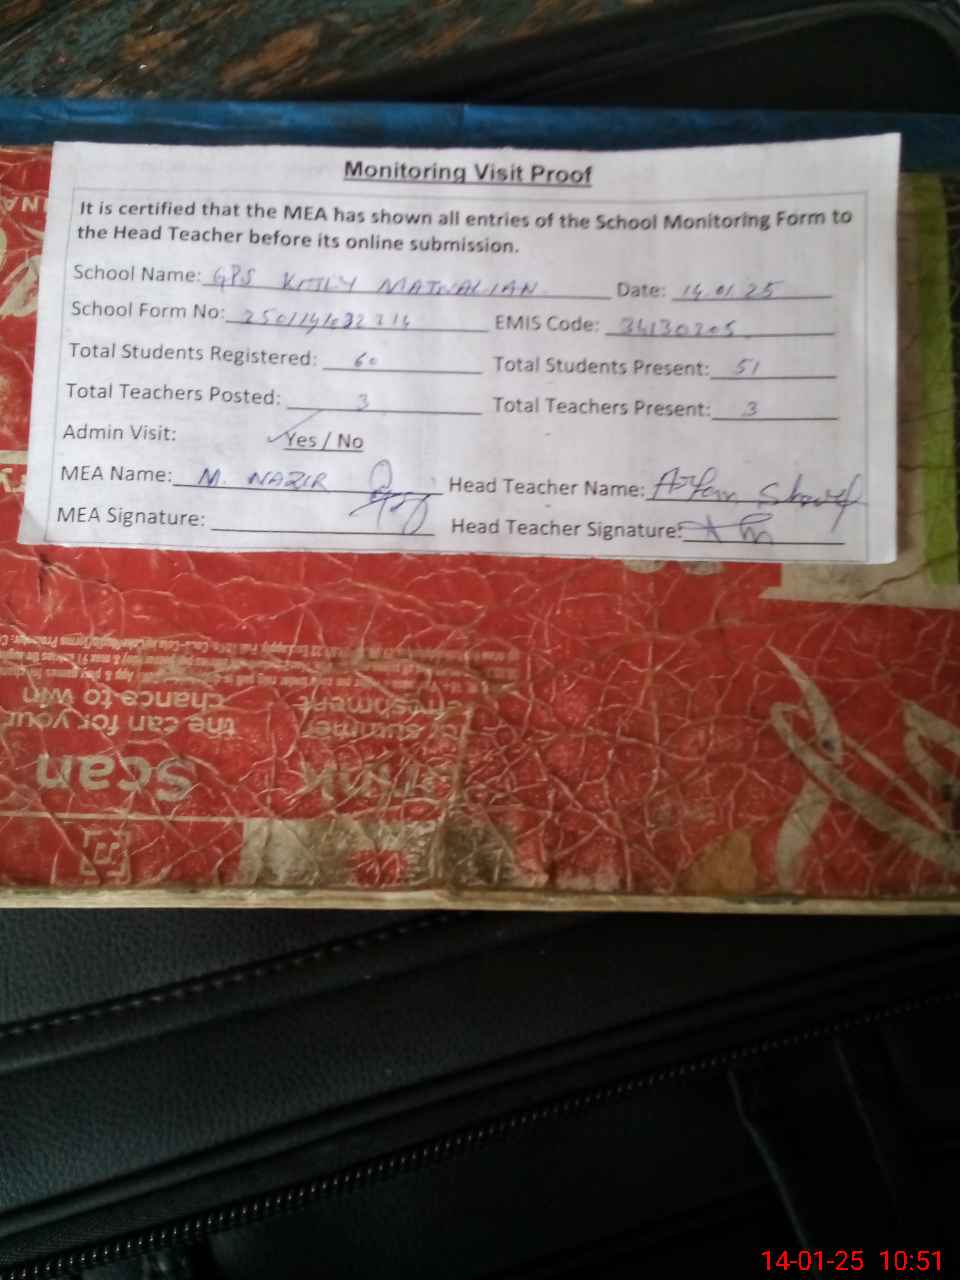 Monitoring Visit Proof
It is certified that the MEA has shown all entries of the School Monitoring Form to
the Head Teacher before its online submission.
School Name: GPS KOTLY MATWALIAN Date: 14.01.25
School Form No: EMIS Code: 34130205
Total Students Registered: 60 Total Students Present: 51
Total Teachers Posted: 3 Total Teachers Present: 3
Admin Visit: Yes / No
MEA Name: M. NAZIR Head Teacher Name:
MEA Signature: Head Teacher Signature:
chance to win
the can for your
Scan
refreshment
summer
14-01-25 10:51